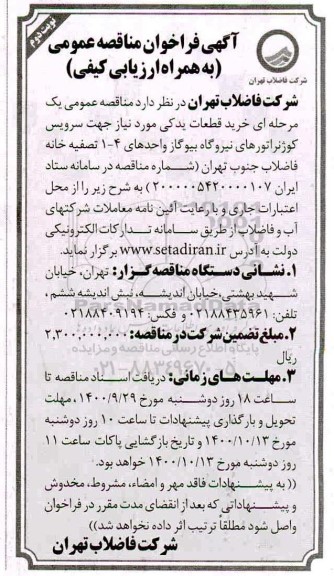 نوبت دوم
آگهی فراخوان مناقصه عمومی
(به همراه ارزیابی کیفی)
شرکت فاضلاب تهران
شرکت فاضلاب تهران در نظر دارد مناقصه عمومی یک
مرحله ای خرید قطعات یدکی مورد نیاز جهت سرویس
کوژنراتورهای نیروگاه بیوگاز واحدهای ۴-۱ تصفیه خانه
فاضلاب جنوب تهران (شماره مناقصه در سامانه ستاد
ایران ۲۰۰۰۰۰۵۴۲۰۰۰۰۱۰۷) به شرح زیر را از محل
اعتبارات جاری و با رعایت آئین نامه معاملات شرکتهای
آب و فاضلاب از طریق سامانه تدارکات الکترونیکی
دولت به آدرس www.setadiran.ir برگزار نماید.
۱.نشانی دستگاه مناقصه گزار: تهران، خیابان
شهید بهشتی،خیابان اندیشه، نبش اندیشه ششم،
تلفن: ۰۲۱۸۸۴۳۵۹۶۱ و فکس: ۰۲۱۸۸۴۰۹۱۹۴
۲.مبلغ تضمین شرکت در مناقصه: ۲,۳۰۰,۰۰۰,۰۰۰
ریال
۳.مهلت های زمانی: دریافت اسناد مناقصه تا
ساعت ۱۸ روز دوشنبه مورخ ۱۴۰۰/۹/۲۹ ،مهلت
تحویل و بارگذاری پیشنهادات تا ساعت ۱۰ روز دوشنبه
مورخ ۱۴۰۰/۱۰/۱۳ و تاریخ بازگشایی پاکات ساعت ۱۱
روز دوشنبه مورخ ۱۴۰۰/۱۰/۱۳ خواهد بود.
((به پیشنهادات فاقد مهر و امضاء، مشروط، مخدوش
و پیشنهاداتی که بعد از انقضای مدت مقرر در فراخوان
واصل شود مطلقاً ترتیب اثر داده نخواهد شد))
شرکت فاضلاب تهران